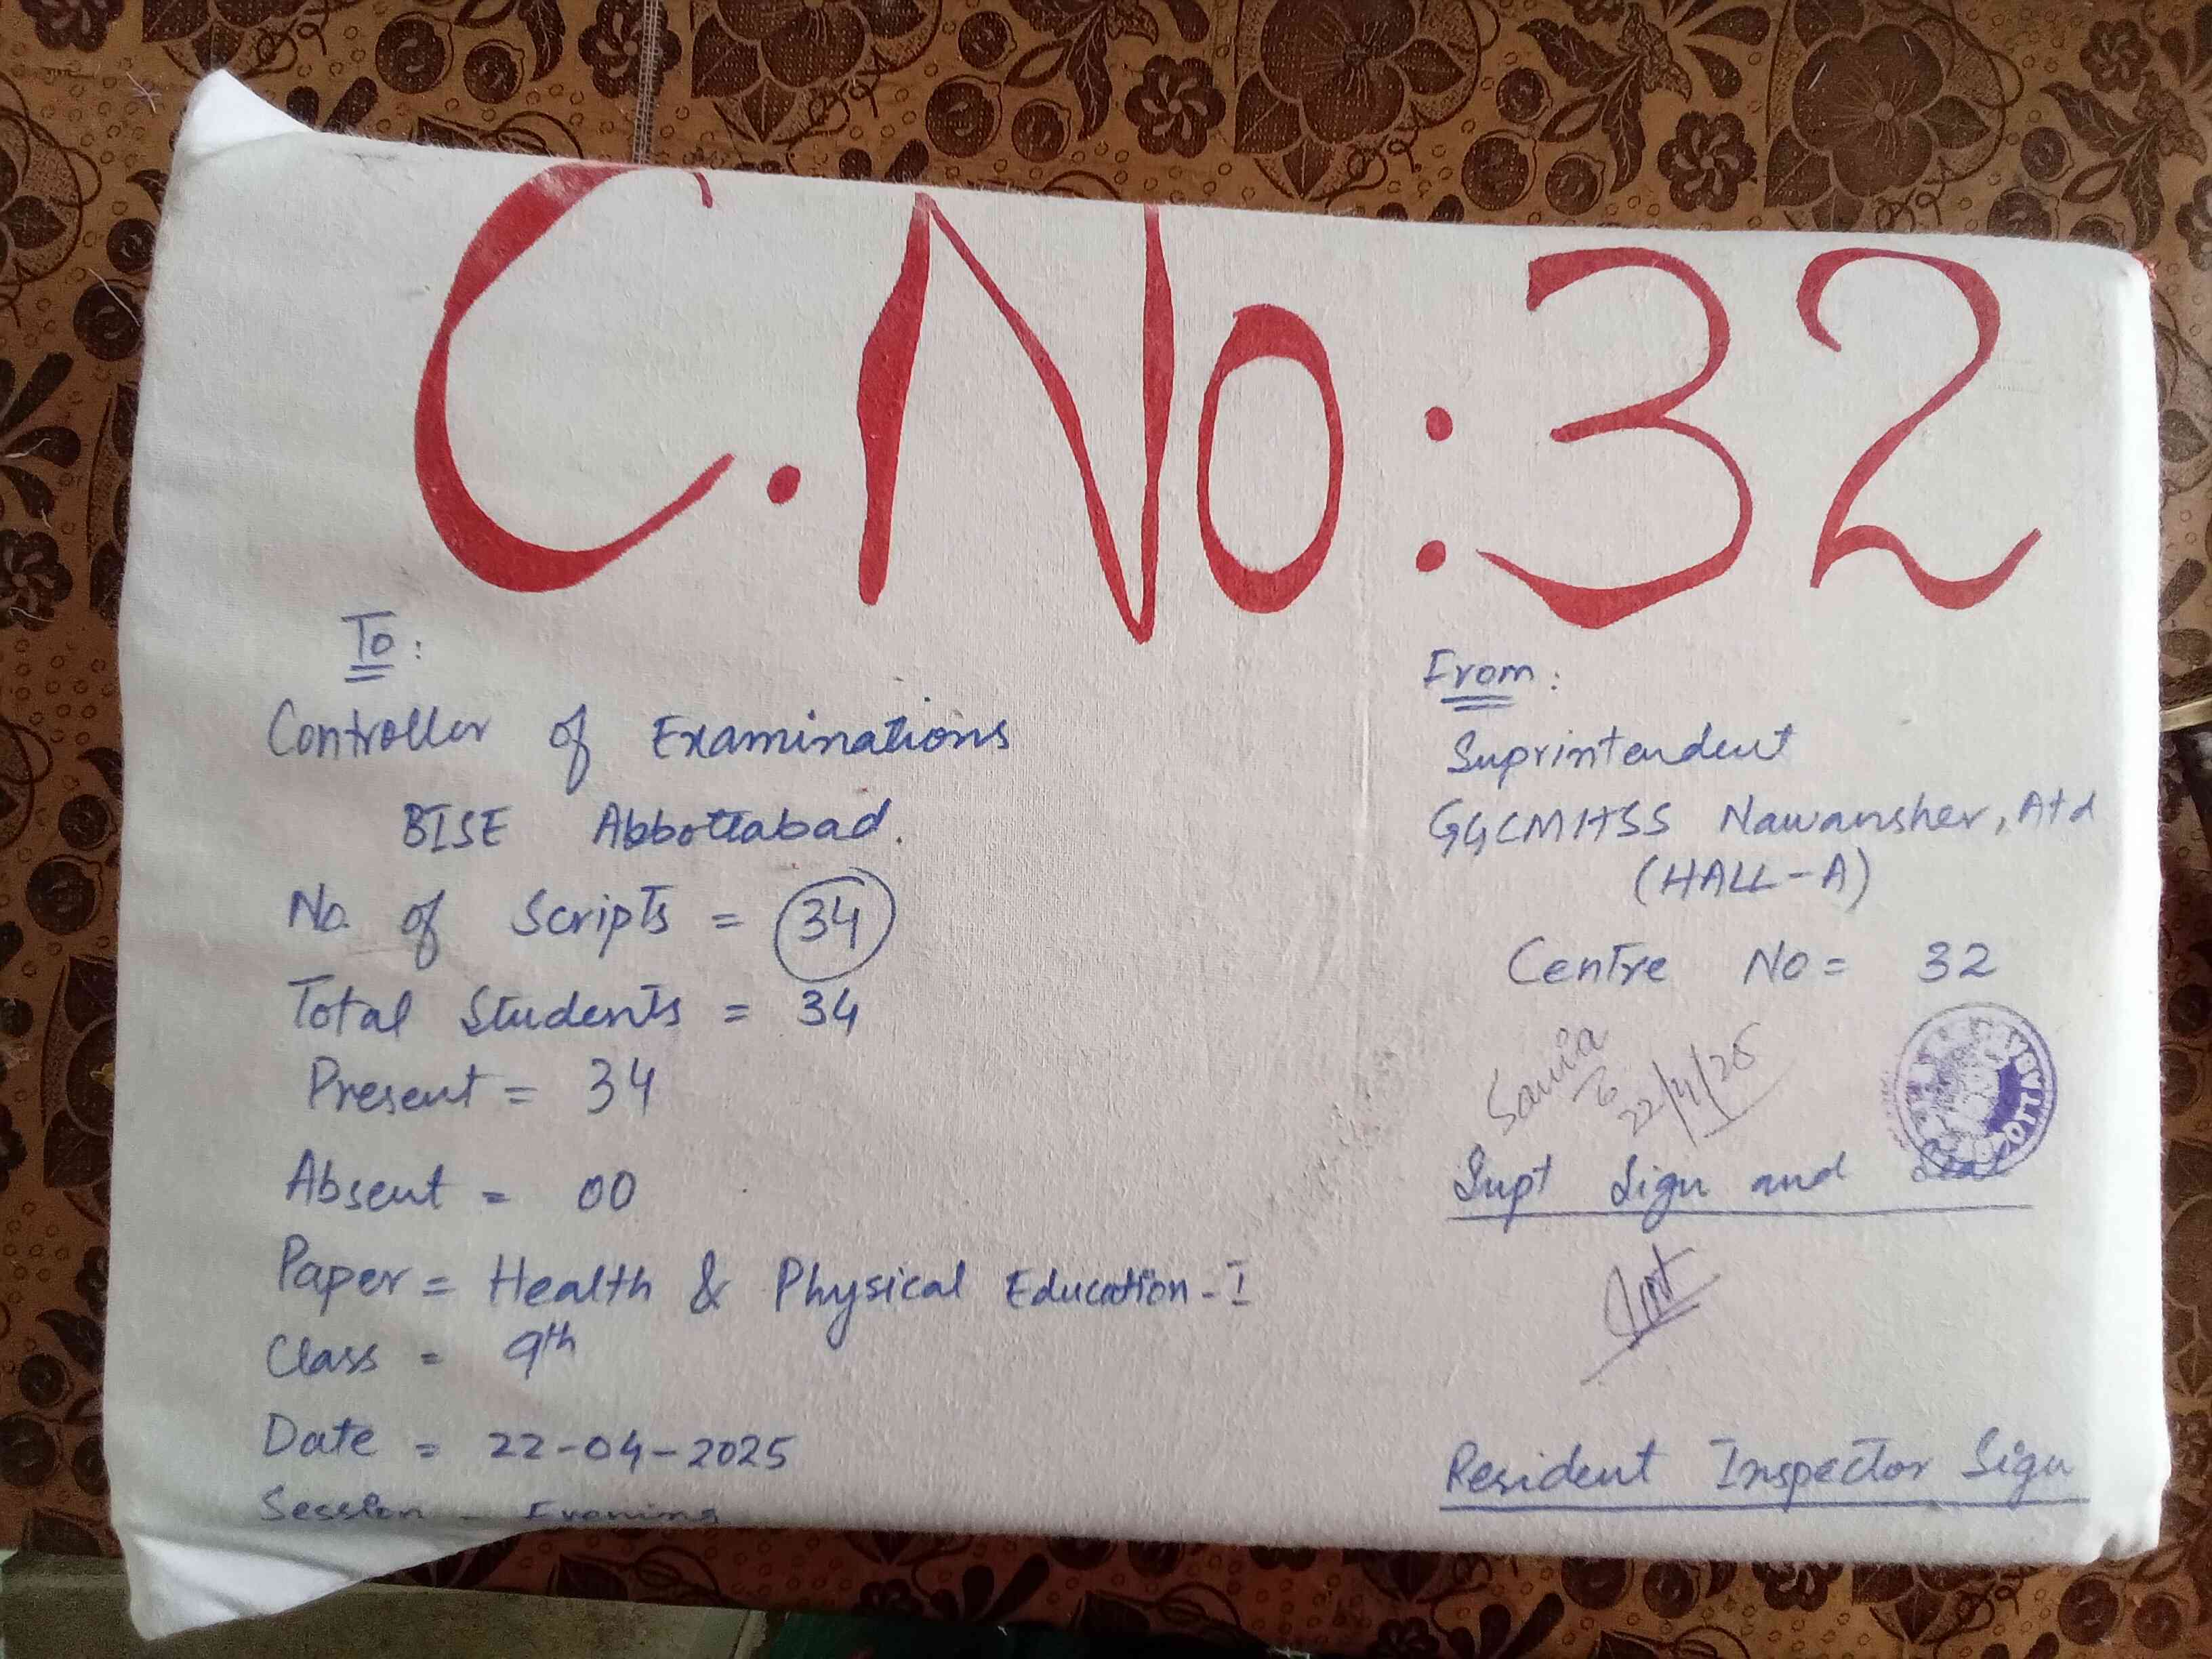 C.No:32
To:
Controller of Examinations
BISE Abbottabad.
No. of Scripts = 34
Total Students = 34
Present = 34
Absent = 00
Paper = Health & Physical Education-I
Class = 9th
Date = 22-04-2025
Session = Evening
From:
Suprintendent
GGCMHSS Nawansher, Atd
(HALL-A)
Centre No = 32
22/4/25
Supt Sign and Seal
Resident Inspector Sign